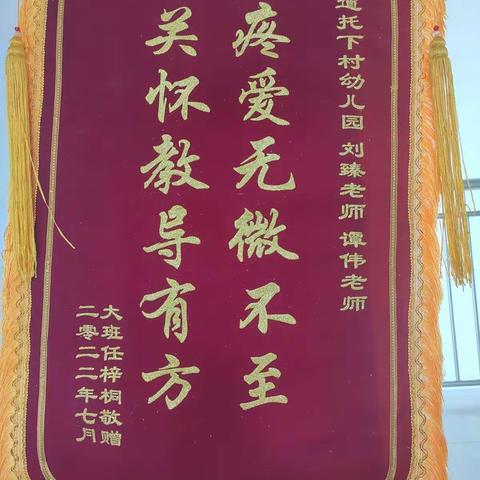 道托下村幼儿园 刘臻老师 谭伟老师
疼爱无微不至
关怀教导有方
大班任梓桐敬赠
二零二二年七月